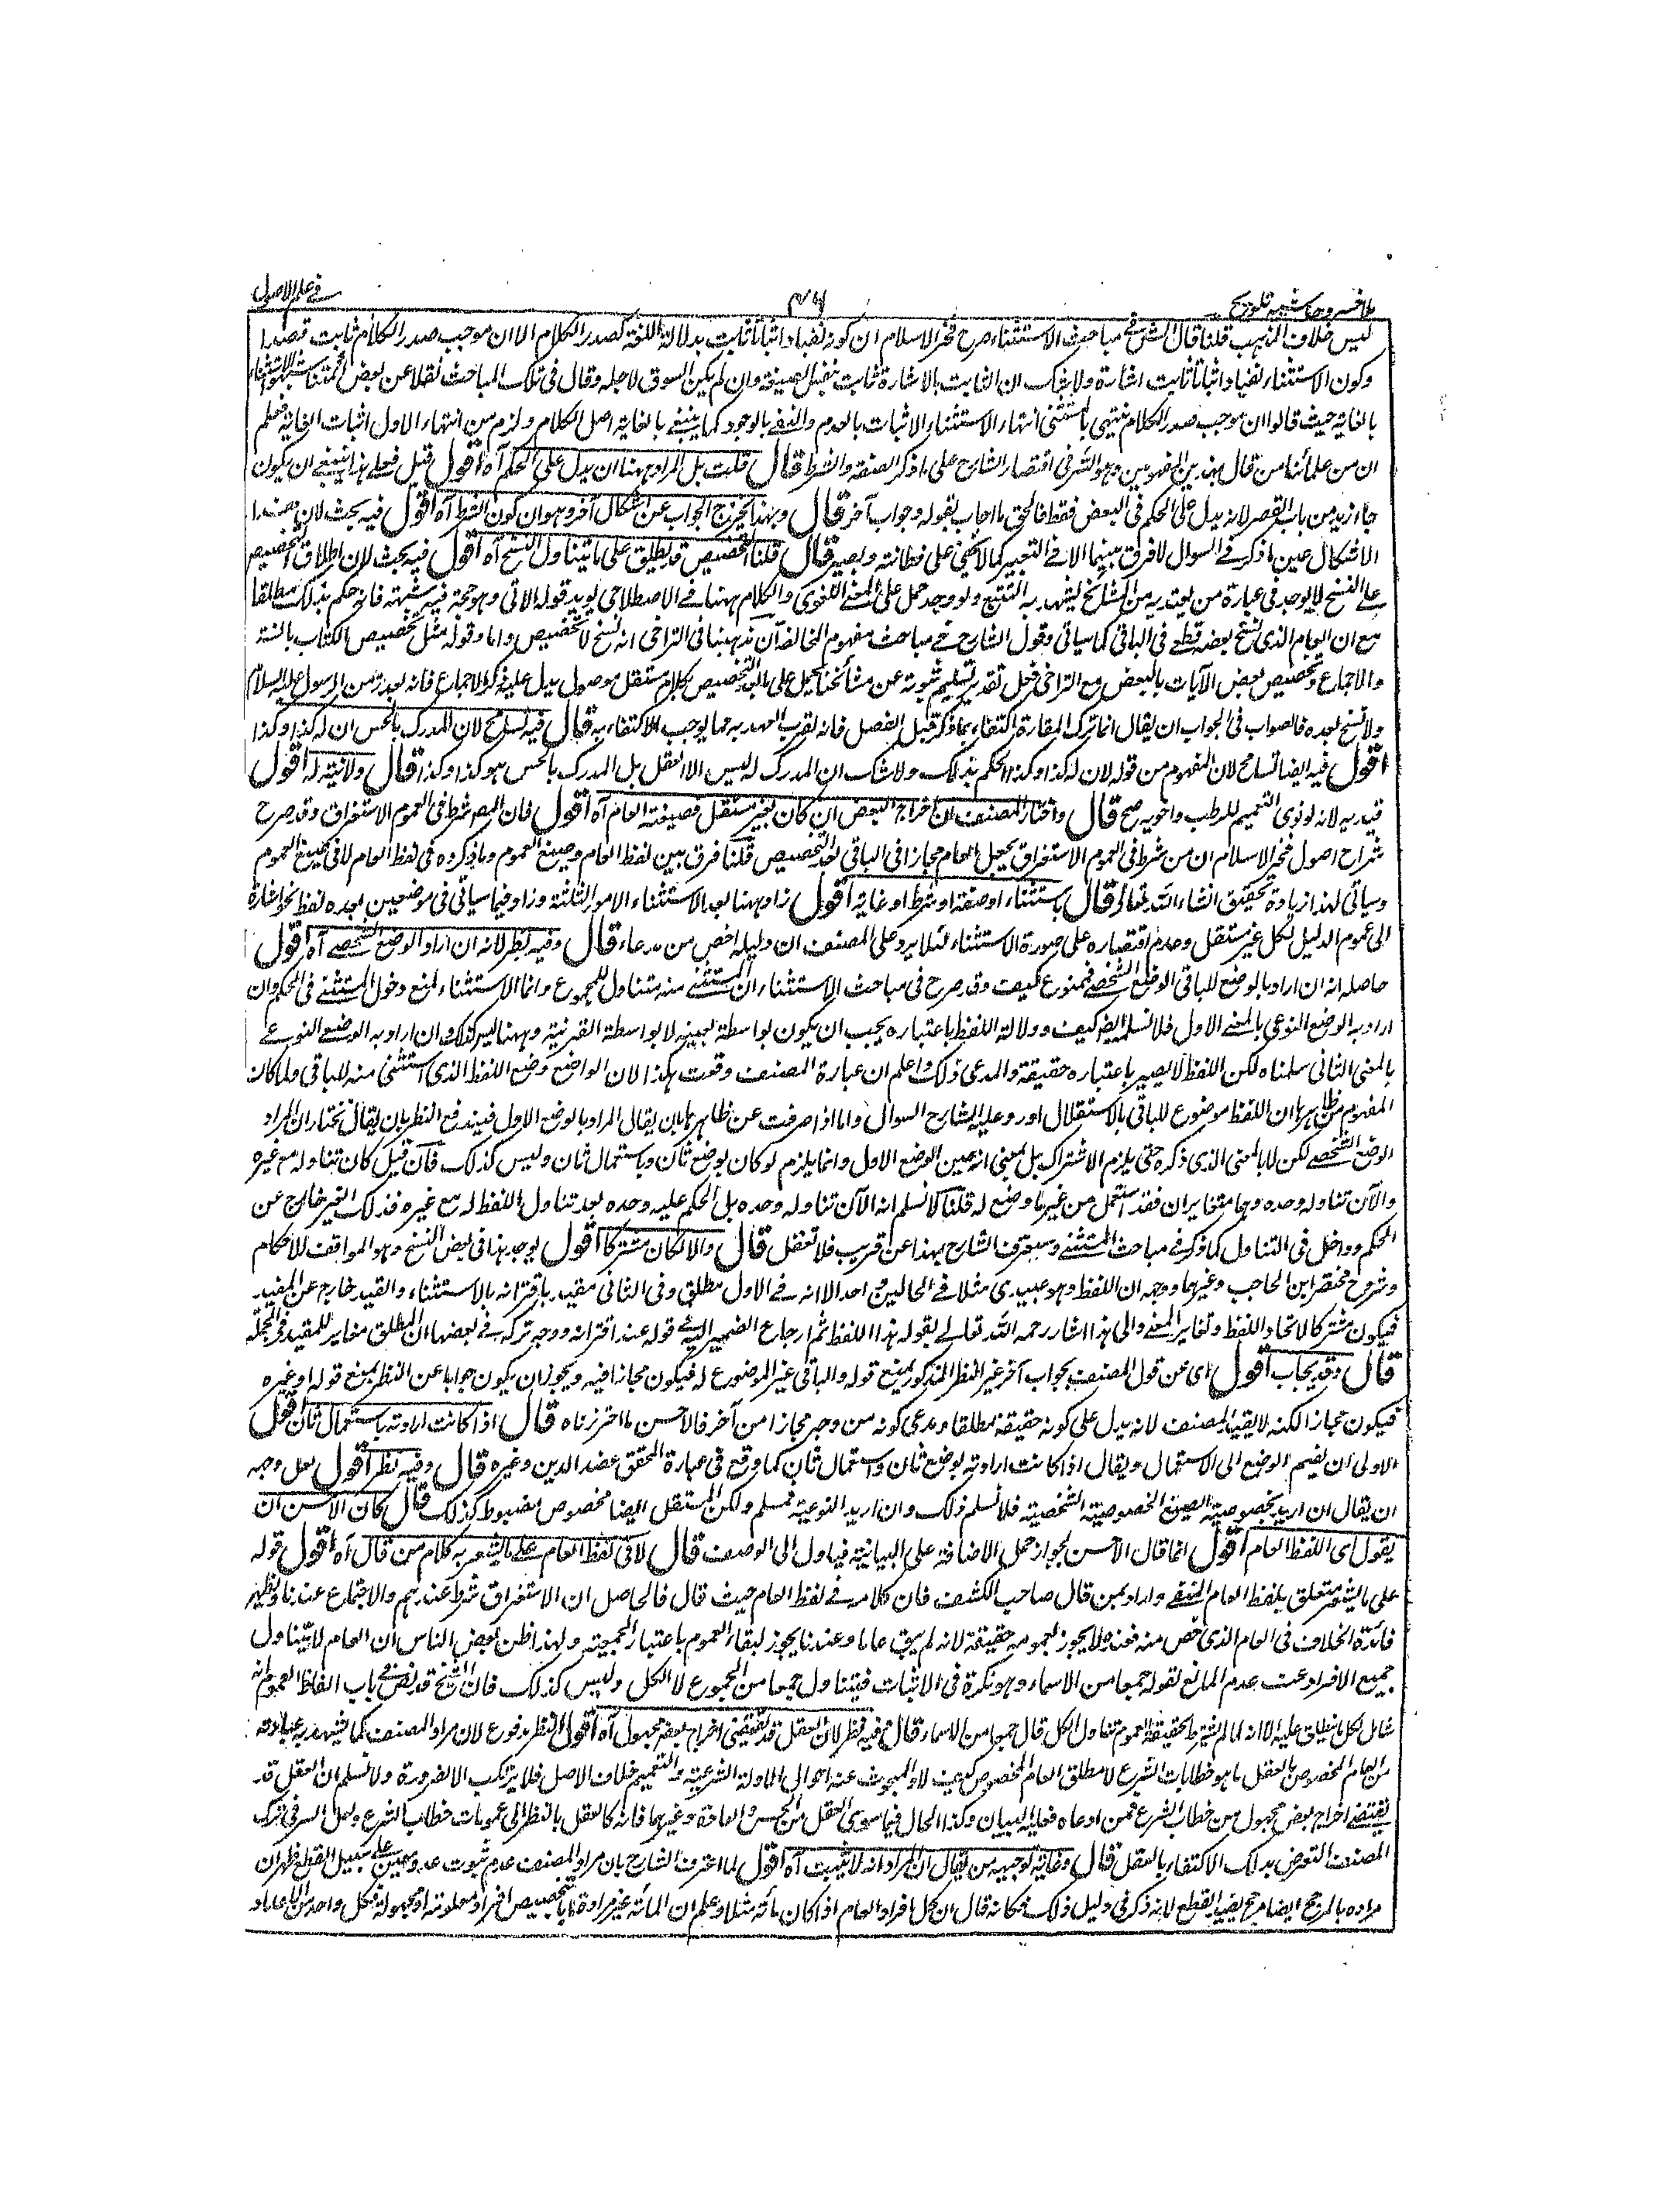 ملا خسرو حاشیه تلویح
۴۶
فی علم الاصول
لیس خلاف المذهب قلنا قال الش فی مباحث الاستثناء صرح فخر الاسلام ان کونه نفیا واثباتا ثابت بدلالة اللغة کصدر الکلام الا ان موجب صدر الکلام ثابت قصدا
وکون الاستثناء نفیا واثباتا ثابت اشارة ولا شک ان الثابت بالاشارة ثابت بنفس الصیغة وان لم یکن السوق لاجله وقال فی تلک المباحث نقلا عن بعض ائمتنا شبهوا الاستثناء
بالغایة حیث قالوا ان موجب صدر الکلام ینتهی بالمستثنی انتهاء الاستثناء الاثبات بالعدم والنفی بالوجود کما ینتهی بالغایة اصل الکلام ولزم من انتهاء الاول اثبات الغایة فعلم
ان من علمائنا من قال بهذین المفهومین وهو السر فی اقتصار الشارح علی ما ذکر الصفة والشرط قال قلت بل المراد ههنا ان یدل علی الحکم آه اقول قیل فعلی هذا ینبغی ان یکون
جاء زید من باب القصر لانه یدل علی الحکم فی البعض فقط فالحق ما اجاب بقوله وجواب آخر قال وبهذا یخرج الجواب عن اشکال آخر وهو ان کون الشرط آه اقول فیه بحث لان هذا
الاشکال عین ما ذکر فی السوال لا فرق بینهما الا فی التعبیر کما لا یخفی علی فطانته وبصیر قال قلنا التخصیص قد یطلق علی ما یتناول النسخ آه اقول فیه بحث لان اطلاق التخصیص
علی النسخ لا یوجد فی عبارة من یعتد به من المشائخ یشهد به التتبع ولو وجد حمل علی المعنی اللغوی والکلام ههنا فی الاصطلاحی یوید قوله الاتی وهو حجة فیه شبهته فانه حکم بذلک مطلقا
مع ان العام الذی نسخ بعضه قطعی فی الباقی کما سیاتی وقول الشارح فی مباحث مفهوم المخالفة ان مذهبنا فی التراخی انه نسخ لا تخصیص واما قوله مثل تخصیص الکتاب بالسنة
والاجماع وتخصیص بعض الآیات بالبعض مع التراخی فعلی تقدیر تسلیم ثبوته عن مشائخنا یحمل علی التخصیص بکلام مستقل موصول یدل علیه ذکر الاجماع فانه بعد زمن الرسول علیه السلام
ولا نسخ بعده فالصواب فی الجواب ان یقال انما ترک المقارنة اکتفاء بما ذکر قبیل الفصل فانه لقرب العهد به مما یوجب الاکتفاء به قال فیه تسامح لان المدرک بالحس ان له کذا وکذا
اقول فیه ایضا تسامح لان المفهوم من قوله لان له کذا وکذا الحکم بذلک ولا شک ان المدرک له لیس الا العقل بل المدرک بالحس هو کذا وکذا قال ولا نیة له اقول
قید به لانه لو نوی التعمیم للرطب واخویه صح قال واختار المصنف ان اخراج البعض ان کان بغیر مستقل فصیغة العام آه اقول فان المصر شرط فی العموم الاستغراق وقد صرح
شراح اصول فخر الاسلام ان من شرط فی العموم الاستغراق یجعل العام مجازا فی الباقی بعد التخصیص قلنا فرق بین لفظ العام وصیغ العموم وما ذکروه فی لفظ العام لا فی صیغ العموم
وسیاتی لهذا زیادة تحقیق انشاء الله تعالی قال باستثناء او صفة او شرط او غایة اقول زاد ههنا بعد الاستثناء الامور الثلثة وزاد فیما سیاتی فی موضعین بعده لفظ نحو اشارة
الی عموم الدلیل لکل غیر مستقل وعدم اقتصاره علی صورة الاستثناء لئلا یرد علی المصنف ان دلیله اخص من مدعاه قال وفیه نظر لانه ان اراد الوضع الشخصی آه اقول
حاصله انه ان اراد بالوضع للباقی الوضع الشخصی فممنوع کیف وقد صرح فی مباحث الاستثناء ان المستثنی منه متناول للمجموع وانما الاستثناء لمنع دخول المستثنی فی الحکم وان
اراد به الوضع النوعی بالمعنی الاول فلا نسلم ایضا کیف ودلالة اللفظ باعتباره یجب ان یکون بواسطة تعینه لا بواسطة القرینة وههنا لیس کذلک وان اراد به الوضع النوعی
بالمعنی الثانی سلمناه لکن اللفظ لا یصیر باعتباره حقیقة والمدعی ذلک واعلم ان عبارة المصنف وقعت هکذا لان الواضع وضع اللفظ الذی استثنی منه للباقی ولما کان
المفهوم من ظاهرها ان اللفظ موضوع للباقی بالاستقلال اورد علیه الشارح السوال واما اذا صرفت عن ظاهرها بان یقال المراد بالوضع الاول فیندفع النظر بان یقال نختار ان المراد
الوضع الشخصی لکن لا بالمعنی الذی ذکره حتی یلزم الاشتراک بل بمعنی انه عین الوضع الاول وانما یلزم لو کان بوضع ثان وباستعمال ثان ولیس کذلک فان قیل کان تناوله مع غیره
والآن تناوله وحده وهما متغایران فقد استعمل من غیر ما وضع له قلنا لا نسلم انه الآن تناوله وحده بل الحکم علیه وحده بعد تناول اللفظ له مع غیره فذلک الغیر خارج عن
الحکم وداخل فی التناول کما ذکر فی مباحث المستثنی وسیعترف الشارح بهذا عن قریب فلا تغفل قال والا لکان مشترکا اقول یوجد هذا فی بعض النسخ وهو الموافق للاحکام
وشروح مختصر ابن الحاجب وغیرها ووجهه ان اللفظ وهو عبیدی مثلا فی الحالین واحد الا انه فی الاول مطلق وفی الثانی مقید باقترانه بالاستثناء والقید خارج عن المقید
فیکون مشترکا لاتحاد اللفظ وتغایر المعنی والی هذا اشار رحمه الله تعالی بقوله هذا اللفظ ثم ارجاع الضمیر الیه فی قوله عند اقترانه ووجه ترکه فی بعضها ان المطلق مغایر للمقید فی الجملة
قال وقد یجاب اقول ای عن قول المصنف بجواب آخر غیر النظر المذکور بمنع قوله والباقی غیر الموضوع له فیکون مجازا فیه ویجوز ان یکون جوابا عن النظر بمنع قوله او غیره
فیکون مجازا لکنه لا یفید المصنف لانه یدل علی کونه حقیقة مطلقا ومدعی کونه من وجه مجازا من آخر فالاحسن ما اخترناه قال اذا کانت ارادته باستعمال ثان اقول
الاولی ان یضم الوضع الی الاستعمال ویقال اذا کانت ارادته بوضع ثان واستعمال ثان کما وقع فی عبارة المحقق عضد الدین وغیره قال وفیه نظر اقول لعل وجهه
ان یقال ان ارید بخصوصیة الصیغ الخصوصیة الشخصیة فلا نسلم ذلک وان ارید النوعیة فمسلم ولکن المستقل ایضا مخصوص مضبوط کذلک قال کان الاحسن ان
یقول ای اللفظ العام اقول انما قال الاحسن لجواز حمل الاضافة علی البیانیة فیاول الی الوصف قال لا فی لفظ العام علی ما یشعر به کلام من قال آه اقول قوله
علی ما یشعر متعلق بلفظ العام المنفی واراد بمن قال صاحب الکشف فان کلامه فی لفظ العام حیث قال فالحاصل ان الاستغراق شرط عندهم والاجتماع عندنا ویظهر
فائدة الخلاف فی العام الذی خص منه فعنده لا یجوز لعمومه حقیقة لانه لم یبق عاما وعندنا یجوز لبقاء العموم باعتبار الجمعیة ولهذا ظن بعض الناس ان العام لا یتناول
جمیع الافراد عند عدم المانع لقوله جمعا من الاسماء وهو نکرة فی الاثبات فیتناول جمعا من المجموع لا الکل ولیس کذلک فان الشیخ قد نص فی باب الفاظ العموم انه
شامل لکل ما یطلق علیه الا انه لما لم یشترط لحقیقة العموم تناول الکل قال جمعا من الاسماء قال وفیه نظر لان العقل قد یقتضی اخراج بعض مجهول آه اقول النظر مدفوع لان مراد المصنف کما یشهد به عباراته
من العام المخصوص بالعقل ما هو خطابات الشرع لا مطلق العام المخصوص کیف لا والمبحوث عنه احوال الادلة الشرعیة والتعمیم خلاف الاصل فلا یرتکب الا لضرورة ولا نسلم ان العقل قد
یقتضی اخراج بعض مجهول من خطاب الشرع فمن ادعاه فعلیه البیان وکذا الحال فیما سوی العقل من الحس والعادة وغیرهما فانه کالعقل بالنظر الی عمومات خطاب الشرع ولعل السر فی ترک
المصنف التعرض بذلک الاکتفاء بالعقل قال وغایة توجیهه من یقال ان المراد انه لا یثبت آه اقول لما اعترف الشارح بان مراد المصنف عدم ثبوت عدد معین علی سبیل القطع فظهر ان
مراده بالمرجح ایضا مرجح یفید القطع لانه ذکر فی دلیل ذلک فکانه قال ان کل افراد العام اذا کان مائة مثلا وعلم ان المائة غیر مرادة بتخصیص افراد معلومة او مجهولة فکل واحد من الاعداد